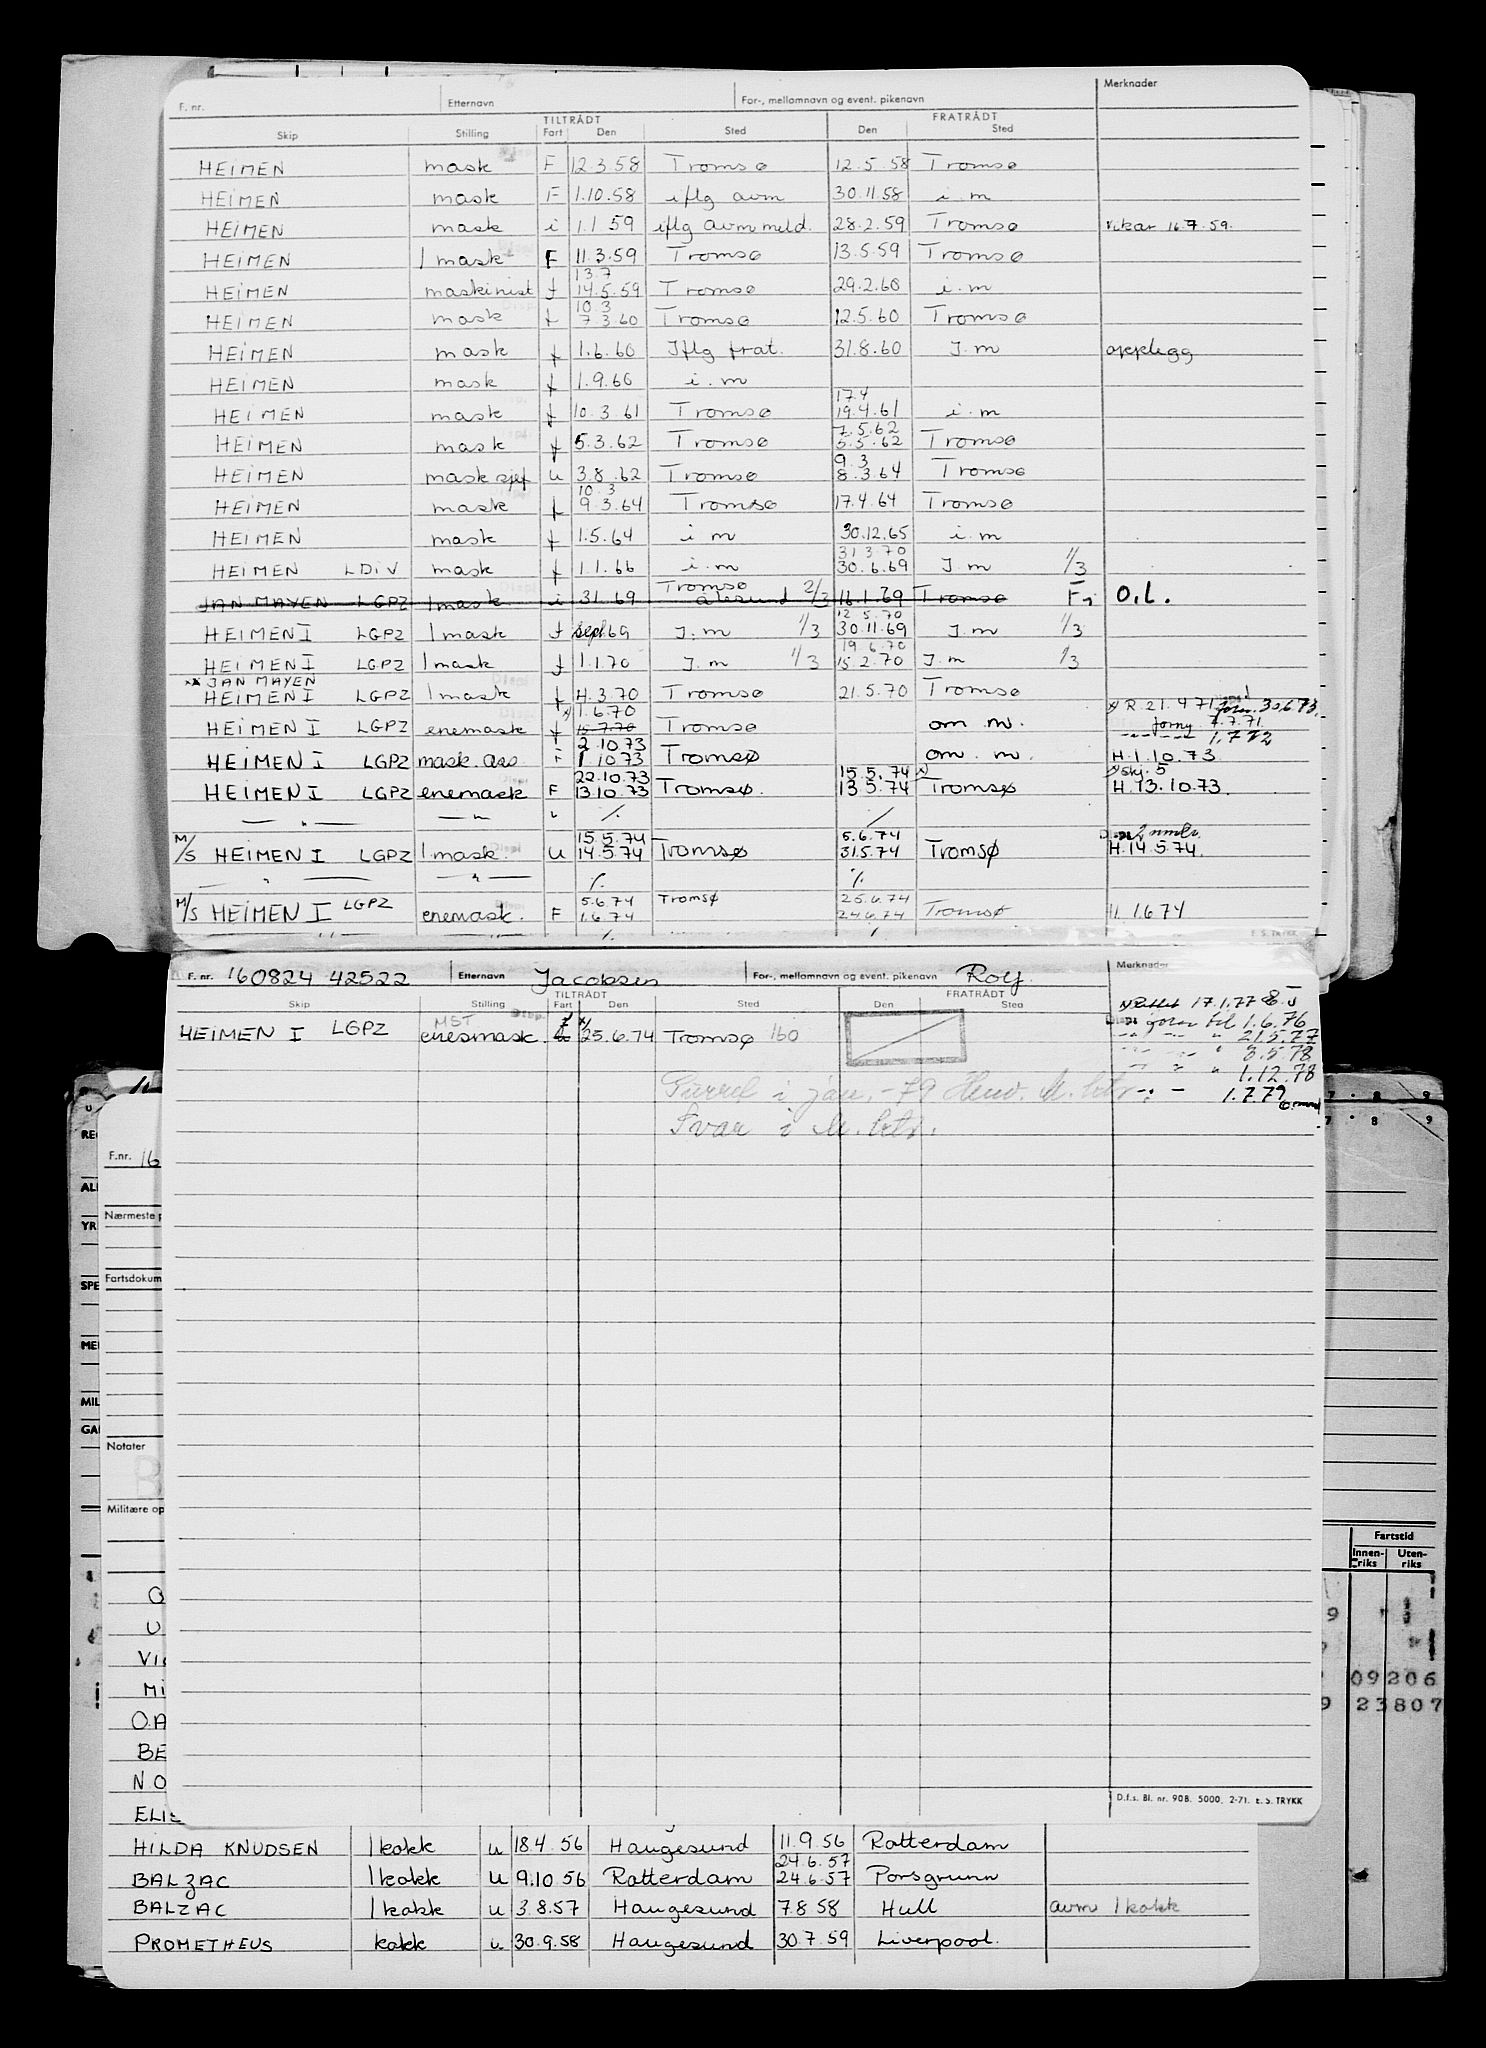 F. nr. Etternavn For-, mellomnavn og event. pikenavn Merknader
TILTRÅDT FRATRÅDT
Skip Stilling Fart Den Sted Den Sted
HEIMEN mask F 12.3.58 Tromsø 12.5.58 Tromsø
HEIMEN mask F 1.10.58 iflg avm 30.11.58 i.m
HEIMEN mask i 1.1 59 iflg avm meld. 28.2.59 Tromsø vikar 16.7.59.
HEIMEN 1 mask F 11.3.59 Tromsø 13.5.59 Tromsø
13.7
HEIMEN maskinist f 14.5.59 Tromsø 29.2.60 i.m
10 3
HEIMEN mask f 7.3.60 Tromsø 12.5.60 Tromsø
HEIMEN mask f 1.6.60 Iflg frat. 31.8.60 I.m opplegg
HEIMEN mask f 1.9.60 i.m
17.4
HEIMEN mask f 10.3.61 Tromsø 19.4.61 i.m
7.5.62
HEIMEN mask f 5.3.62 Tromsø 5.5.62 Tromsø
9.3
HEIMEN mask sjef u 3.8.62 Tromsø 8.3.64 Tromsø
10.3
HEIMEN mask f 9.3.64 Tromsø 17.4.64 Tromsø
HEIMEN mask f 1.5.64 i m 30.12.65 i.m
31 3.70
HEIMEN LDIV mask f 1.1.66 i.m 30.6.69 I.m 1/3
Tromsø
JAN MAYEN LGPZ 1 mask i 31.69 ålesund 2/3 16.1.69 Tromsø F, O.L.
12 5.70
HEIMEN I LGPZ 1 mask f sept.69 I.m 1/3 30.11.69 I.m 1/3
19 6.70
HEIMEN I LGPZ 1 mask f 1.1.70 I.m 1/3 15.2.70 I.m 1/3
JAN MAYEN
HEIMEN I LGPZ 1 mask f 4.3.70 Tromsø 21.5.70 Tromsø
1.6.70 R.21.4 71 forn. 30.6.73.
HEIMEN I LGPZ enemask f 15.7.70 Tromsø om m. forny. 7.7.71.
2.10.73 1.7.72
HEIMEN I LGPZ mask. ass F 1.10.73 Tromsø om. m. H.1.10.73.
22.10.73 15.5.74 skj. 5
HEIMEN I LGPZ enemask F 13.10.73 Tromsø. 13.5.74 Tromsø H.13.10.73.
— " — — " — " %. /
15.5.74 5.6.74
M/S HEIMEN I LGPZ 1 mask. u 14.5.74 Tromsø 31.5.74 Tromsø H.14.5.74.
— " — — " — %. %.
5.6.74 25.6.74
M/S HEIMEN I LGPZ enemask. F 1.6.74 Tromsø 24.6.74 Tromsø H 1.6 74
E. S. TRYKK
F. nr. 160824 42522 Etternavn Jacobsen For-, mellomnavn og event. pikenavn Rolf. Merknader
TILTRÅDT FRATRÅDT
Skip Stilling Fart Den Sted Den Sted
17.1.77
MST
HEIMEN I LGPZ enesmask. f 25.6.74 Tromsø 160 forn til 1.6.76
" 21.5.77
" 3.5.78
" 1.12.78
Purret i jan. -79 Henv. M. 1.7.79
Svar i M.
Disp.
RE
F.nr. 16
AL
Nærmeste p
YR
Fartsdokum
SPE
ME
MIL
GA
Notater
Militære op
Fartstid
Innen-riks Uten-riks
O
U
VI
MI 09 206
O.A 23 807
BE
N.O
ELIS
D.f.s. Bl. nr. 90B. 5000, 2-71. E. S. TRYKK
HILDA KNUDSEN 1 kokk u 18.4.56 Haugesund 11.9.56 Rotterdam
24.6.57
BALZAC 1 kokk u 9.10 56 Rotterdam 24.6.57 Porsgrunn
BALZAC 1 kokk u 3.8.57 Haugesund 7.8 58 Hull avm 1 kokk
PROMETHEUS kokk u 30.9.58 Haugesund 30.7.59 Liverpool.